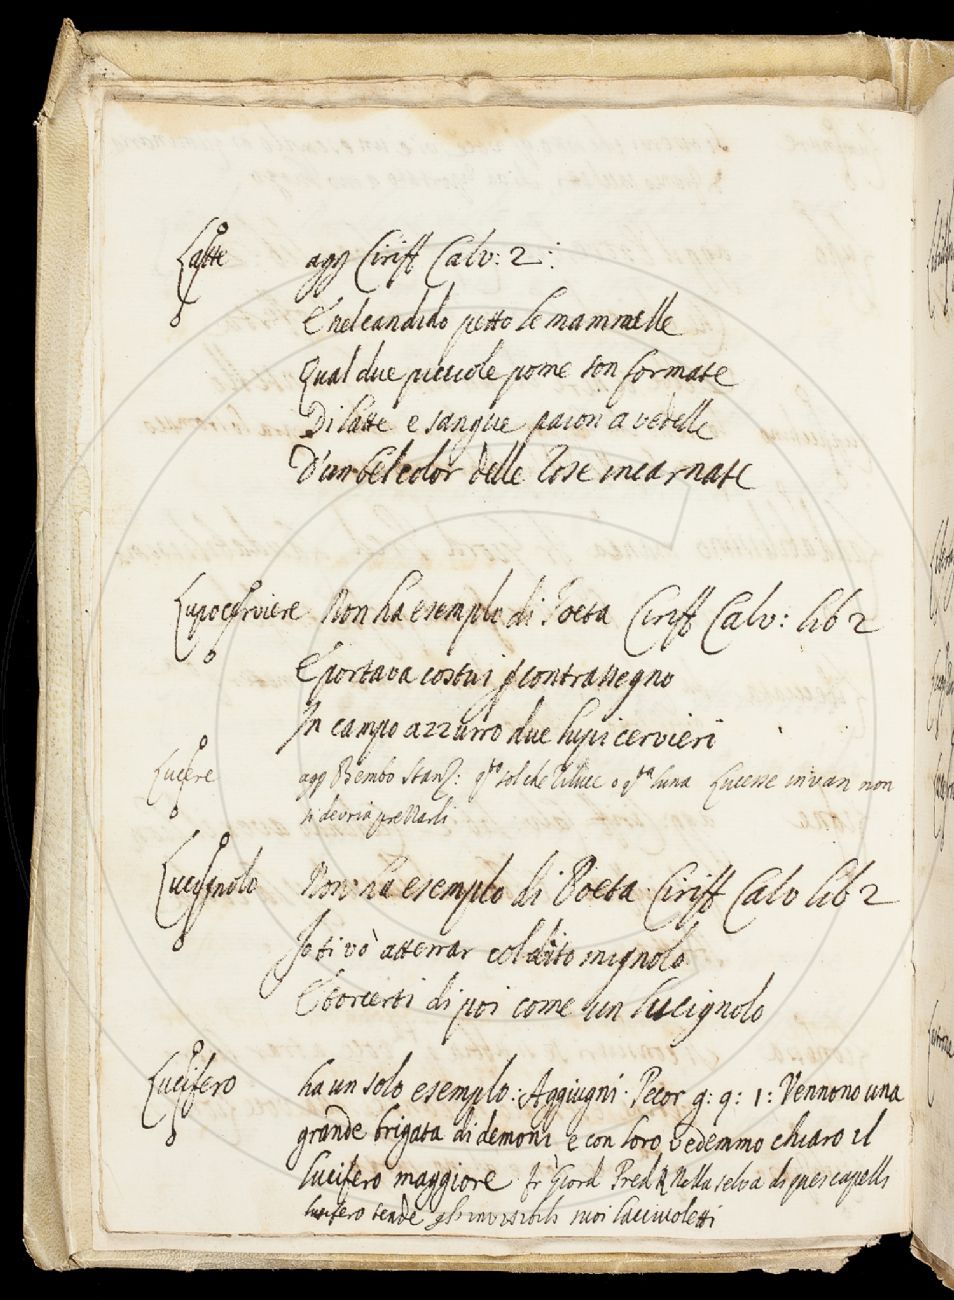 Latte agg Ciriff Calv: 2:
E nel candido petto le mammelle
Qual due piccole pome son formate
Di latte e sangue paion a vedelle
D'un bel color delle rose incarnate
Lupo cerviere Non ha esempio di Poeta Ciriff Calv: lib 2
E portava costui p contrassegno
In campo azzurro due lupi cervieri
Lucere agg Bembo Stanz: sol che luna Lucesse in van non
si devria prezzarli
Lucignolo Non ha esempio di Poeta Ciriff Calv lib 2
Io ti vo atterrar col dito mignolo
E torcerti di poi come un lucignolo
Lucifero ha un solo esempio: Aggiugni Pecor g: 9: 1: Vennono una
grande brigata di demoni e con loro vedemmo chiaro il
lucifero maggiore fr Giord Pred R Nella selva di quei capelli
lucifero tende gl'invisibili suoi lacciuoletti